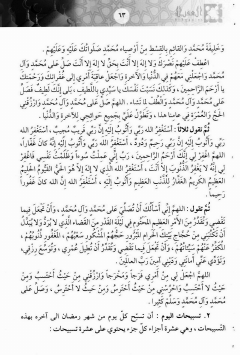 ٦٣
وَخَلِيفَةِ مُحَمَّدٍ وَالْقَائِمِ بِالْقِسْطِ مِنْ أَوْصِيَاءِ مُحَمَّدٍ صَلَوَاتُكَ عَلَيْهِ وَعَلَيْهِمْ.
اعْطِفْ عَلَيْهِمْ نَصْرَكَ وَلَا إِلَهَ إِلَّا أَنْتَ بِحَقِّ لَا إِلَهَ إِلَّا أَنْتَ صَلِّ عَلَى مُحَمَّدٍ وَآلِ
مُحَمَّدٍ وَاجْعَلْنِي مَعَهُمْ فِي الدُّنْيَا وَالْآخِرَةِ وَاجْعَلْ عَاقِبَةَ أَمْرِي إِلَى غُفْرَانِكَ وَرَحْمَتِكَ
يَا أَرْحَمَ الرَّاحِمِينَ، وَكَذَلِكَ نَسَبْتَ نَفْسَكَ يَا سَيِّدِي بِاللُّطْفِ، بَلَى إِنَّكَ لَطِيفٌ فَصَلِّ
عَلَى مُحَمَّدٍ وَآلِ مُحَمَّدٍ وَالْطُفْ لِمَا تَشَاءُ. اللهم صَلِّ عَلَى مُحَمَّدٍ وَآلِ مُحَمَّدٍ وَارْزُقْنِي
الْحَجَّ وَالْعُمْرَةَ فِي عَامِنَا هَذَا، وَتَطَوَّلْ عَلَيَّ بِجَمِيعِ حَوَائِجِي لِلْآخِرَةِ وَالدُّنْيَا.
ثُمَّ تقول ثلاثاً: أَسْتَغْفِرُ اللهَ رَبِّي وَأَتُوبُ إِلَيْهِ إِنَّ رَبِّي قَرِيبٌ مُجِيبٌ، أَسْتَغْفِرُ اللهَ
رَبِّي وَأَتُوبُ إِلَيْهِ إِنَّ رَبِّي رَحِيمٌ وَدُودٌ، أَسْتَغْفِرُ اللهَ رَبِّي وَأَتُوبُ إِلَيْهِ إِنَّهُ كَانَ غَفَّاراً،
اللهم اغْفِرْ لِي إِنَّكَ أَرْحَمُ الرَّاحِمِينَ، رَبِّ إِنِّي عَمِلْتُ سُوءاً وَظَلَمْتُ نَفْسِي فَاغْفِرْ
لِي إِنَّهُ لَا يَغْفِرُ الذُّنُوبَ إِلَّا أَنْتَ، أَسْتَغْفِرُ اللهَ الَّذِي لَا إِلَهَ إِلَّا هُوَ الْحَيُّ الْقَيُّومُ الْحَلِيمُ
الْعَظِيمُ الْكَرِيمُ الْغَفَّارُ لِلذَّنْبِ الْعَظِيمِ وَأَتُوبُ إِلَيْهِ، أَسْتَغْفِرُ اللهَ إِنَّ اللهَ كَانَ غَفُوراً
رَحِيماً.
ثم تقول: اللهم إِنِّي أَسْأَلُكَ أَنْ تُصَلِّيَ عَلَى مُحَمَّدٍ وَآلِ مُحَمَّدٍ، وَأَنْ تَجْعَلَ فِيمَا
تَقْضِي وَتُقَدِّرُ مِنَ الْأَمْرِ الْعَظِيمِ الْمَحْتُومِ فِي لَيْلَةِ الْقَدْرِ مِنَ الْقَضَاءِ الَّذِي لَا يُرَدُّ وَلَا يُبَدَّلُ
أَنْ تَكْتُبَنِي مِنْ حُجَّاجِ بَيْتِكَ الْحَرَامِ الْمَبْرُورِ حَجُّهُمْ الْمَشْكُورِ سَعْيُهُمْ، الْمَغْفُورِ ذُنُوبُهُمْ،
الْمُكَفَّرِ عَنْهُمْ سَيِّئَاتُهُمْ، وَأَنْ تَجْعَلَ فِيمَا تَقْضِي وَتُقَدِّرُ أَنْ تُطِيلَ عُمُرِي، وَتُوَسِّعَ رِزْقِي،
وَتُؤَدِّيَ عَنِّي أَمَانَتِي وَدَيْنِي آمِينَ رَبَّ الْعَالَمِينَ.
اللهم اجْعَلْ لِي مِنْ أَمْرِي فَرَجاً وَمَخْرَجاً وَارْزُقْنِي مِنْ حَيْثُ أَحْتَسِبُ وَمِنْ
حَيْثُ لَا أَحْتَسِبُ، وَاحْرُسْنِي مِنْ حَيْثُ أَحْتَرِسُ وَمِنْ حَيْثُ لَا أَحْتَرِسُ، وَصَلِّ عَلَى
مُحَمَّدٍ وَآلِ مُحَمَّدٍ وَسَلِّمْ كَثِيراً.
٢. تسبيحات اليوم: أن تسبّح كلّ يوم من شهر رمضان الى آخره بهذه
التّسبيحات، وهي عشرة أجزاء كلّ جزء يحتوي على عشرة تسبيحات: